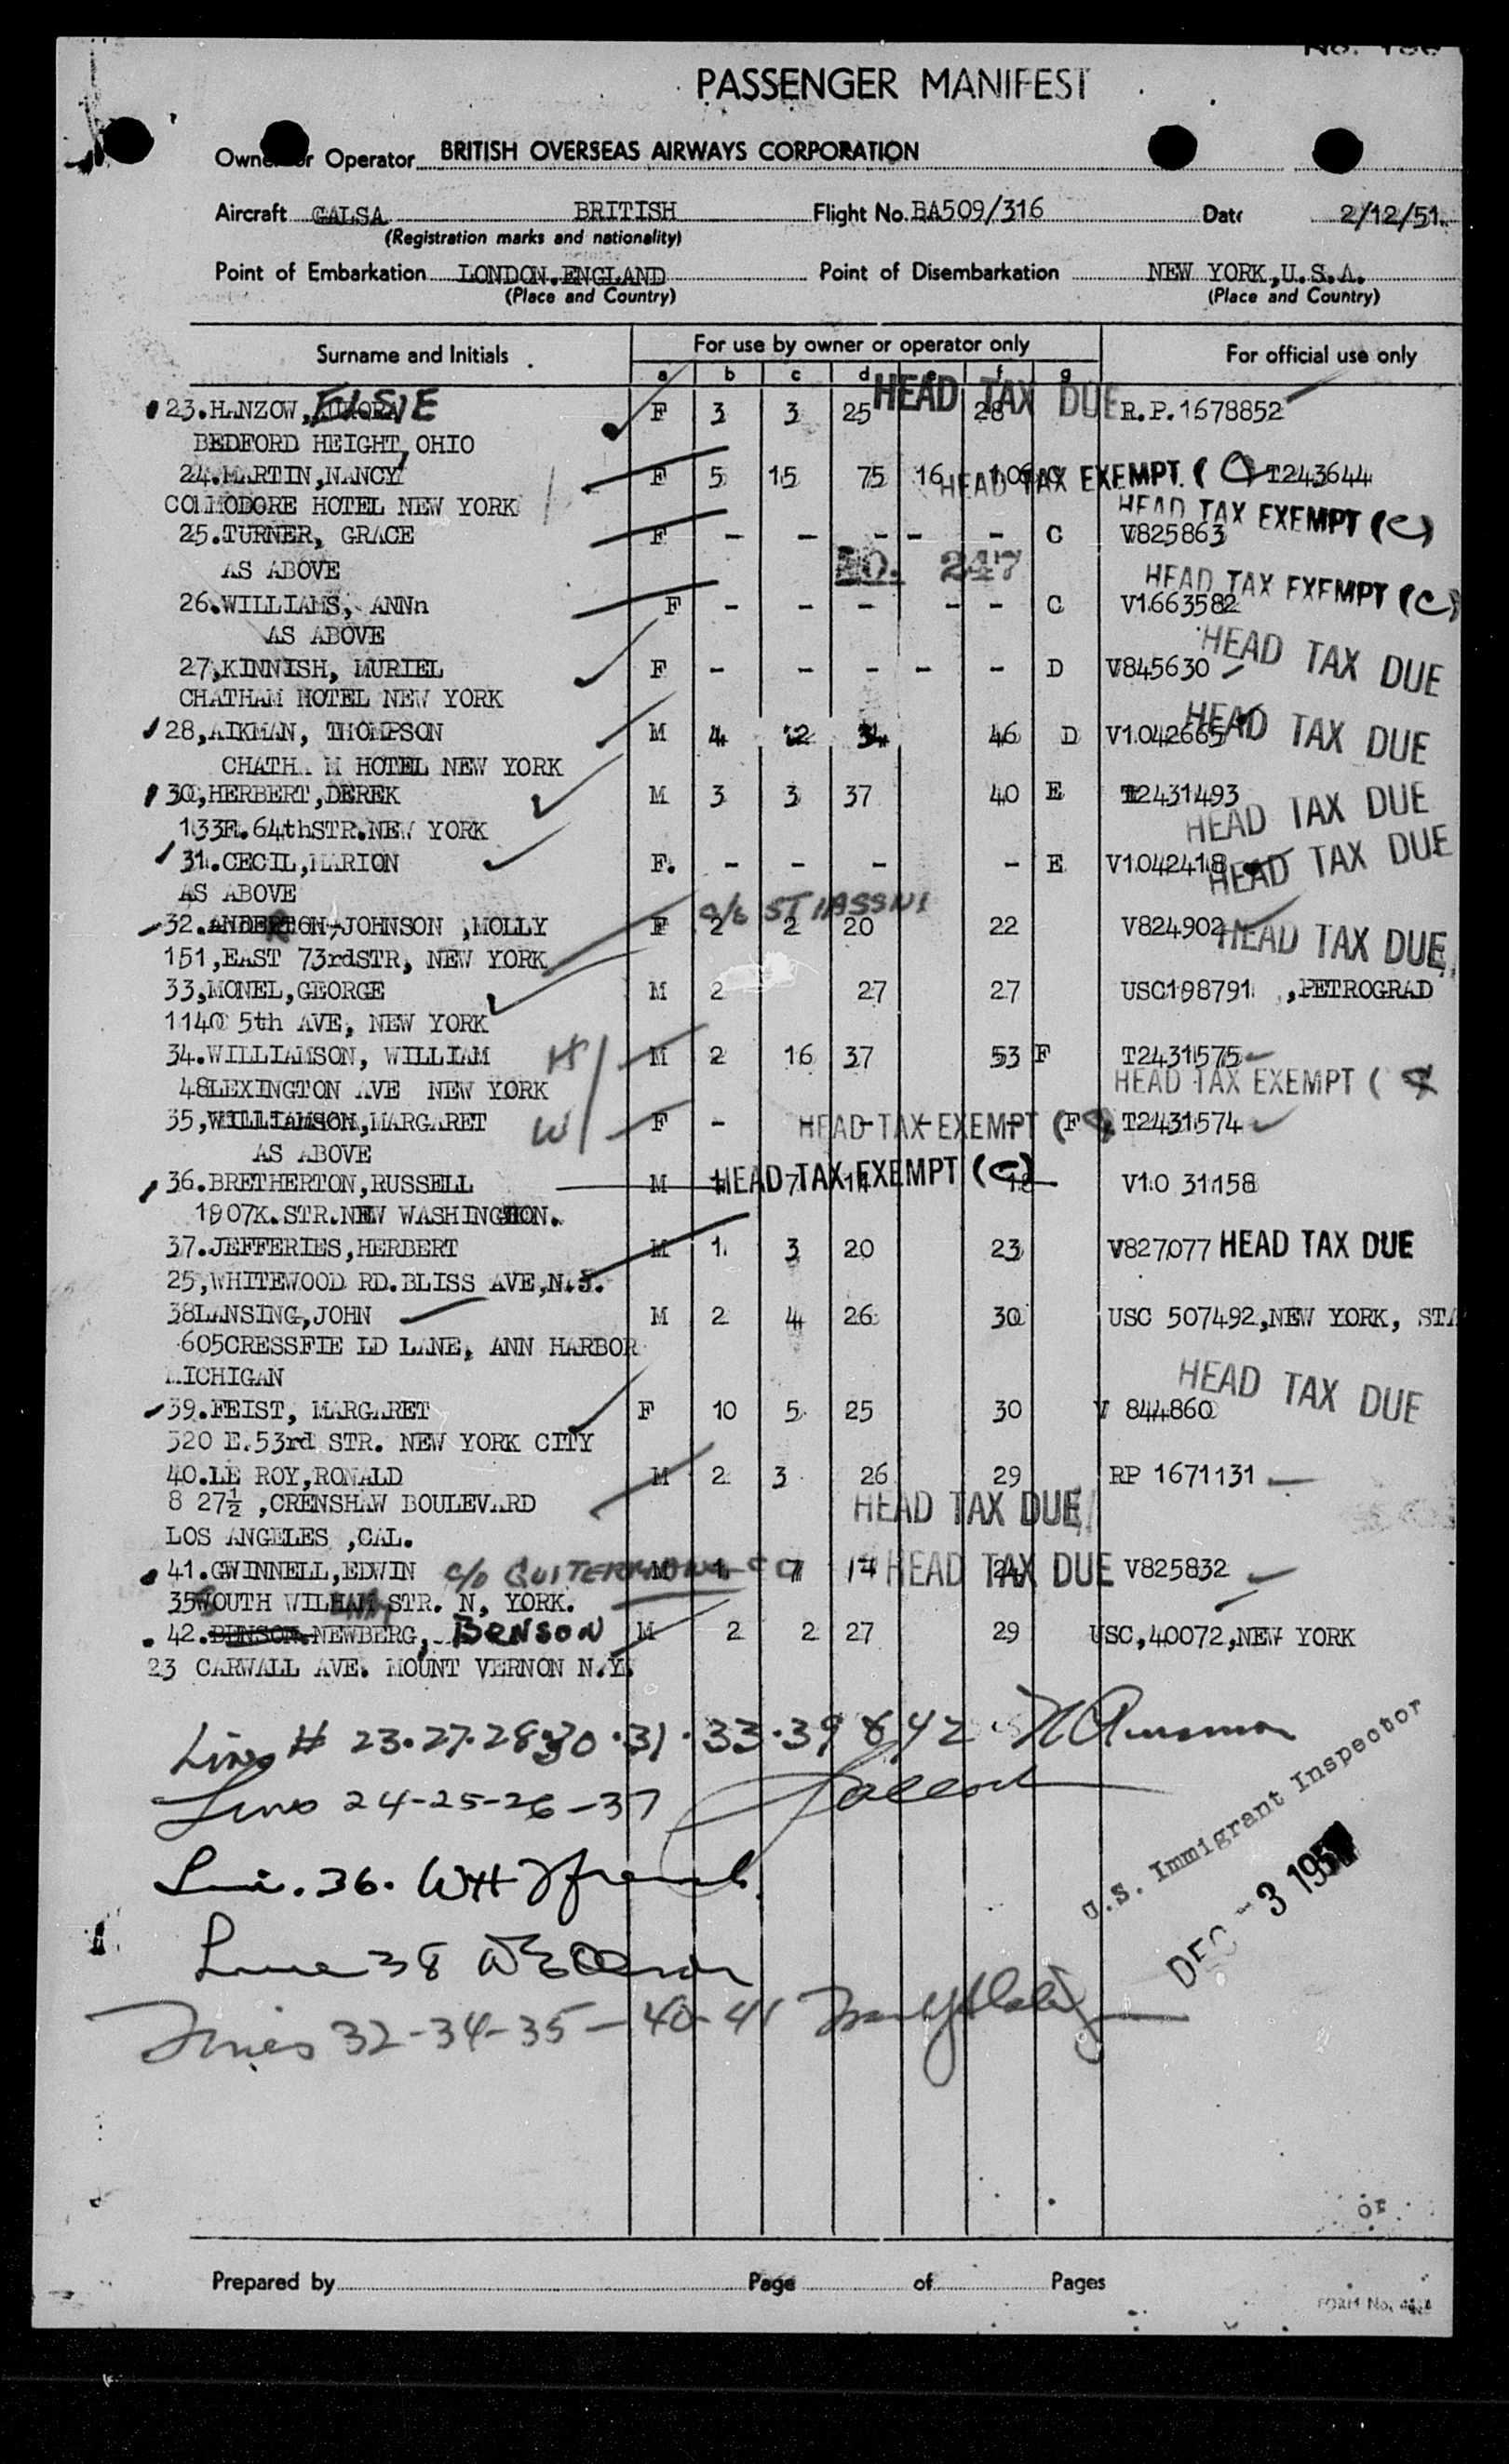 PASSENGER MANIFEST
Owner or Operator BRITISH OVERSEAS AIRWAYS CORPORATION
Aircraft GALSA BRITISH Flight No. BA509/316 Date 2/12/51.
(Registration marks and nationality)
Point of Embarkation LONDON.ENGLAND Point of Disembarkation NEW YORK,U.S.A.
(Place and Country) (Place and Country)
Surname and Initials For use by owner or operator only For official use only
a b c d e f g
HEAD TAX DUE
23.HANZOW, ELSIE F 3 3 25 28 R.P.1678852
BEDFORD HEIGHT, OHIO
24.MARTIN,NANCY F 5 15 75 16 HEAD TAX EXEMPT (C) T243644
COMMODORE HOTEL NEW YORK HEAD TAX EXEMPT (C)
25.TURNER, GRACE F - - - - - C V825863
AS ABOVE NO. 247 HEAD TAX EXEMPT (C)
26.WILLIAMS, ANNn F - - - - - C V1663582
AS ABOVE HEAD TAX DUE
27,KINNISH, MURIEL F - - - - - D V845630
CHATHAM HOTEL NEW YORK HEAD TAX DUE
28,AIKMAN, THOMPSON M 4 12 34 46 D V1042665
CHATHAM HOTEL NEW YORK
30,HERBERT,DEREK M 3 3 37 40 E T2431493
133E.64thSTR.NEW YORK HEAD TAX DUE
31.CECIL,MARION F. - - - - E V1042418 HEAD TAX DUE
AS ABOVE c/o STIASSNI
32. JOHNSON ,MOLLY F 2 2 20 22 V824902 HEAD TAX DUE
151,EAST 73rdSTR, NEW YORK
33,MONEL,GEORGE M 2 27 27 USC198791 ,PETROGRAD
1140 5th AVE, NEW YORK
34.WILLIAMSON, WILLIAM H M 2 16 37 53 F T2431575
48LEXINGTON AVE NEW YORK HEAD TAX EXEMPT (
35,WILLIAMSON,MARGARET W F - HEAD TAX EXEMPT (F T2431574
AS ABOVE
36.BRETHERTON,RUSSELL M HEAD TAX EXEMPT (C) V10 31158
1907K.STR.NEW WASHINGTON.
37.JEFFERIES,HERBERT M 1 3 20 23 V827077 HEAD TAX DUE
25,WHITEWOOD RD.BLISS AVE,N.J.
38LANSING,JOHN M 2 4 26 30 USC 507492,NEW YORK, STA
605CRESSFIE LD LANE, ANN HARBOR
MICHIGAN HEAD TAX DUE
39.FEIST, MARGARET F 10 5 25 30 V 844860
320 E.53rd STR. NEW YORK CITY
40.LE ROY,RONALD M 2 3 26 29 RP 1671131
8 27½ ,CRENSHAW BOULEVARD HEAD TAX DUE
LOS ANGELES ,CAL.
41.GWINNELL,EDWIN c/o M 1 7 14 HEAD TAX DUE V825832
35 SOUTH STR. N, YORK.
42.BENSON.NEWBERG, BENSON M 2 2 27 29 USC,40072,NEW YORK
23 CARWALL AVE. MOUNT VERNON N.Y.
Lines # 23.27.28.30.31.33.39 & 42
Lines 24-25-26-37
Line 36.
Line 38
Lines 32-34-35-40-41
U.S. Immigrant Inspector
DEC -3 1951
or
Prepared by Page of Pages
FORM No.